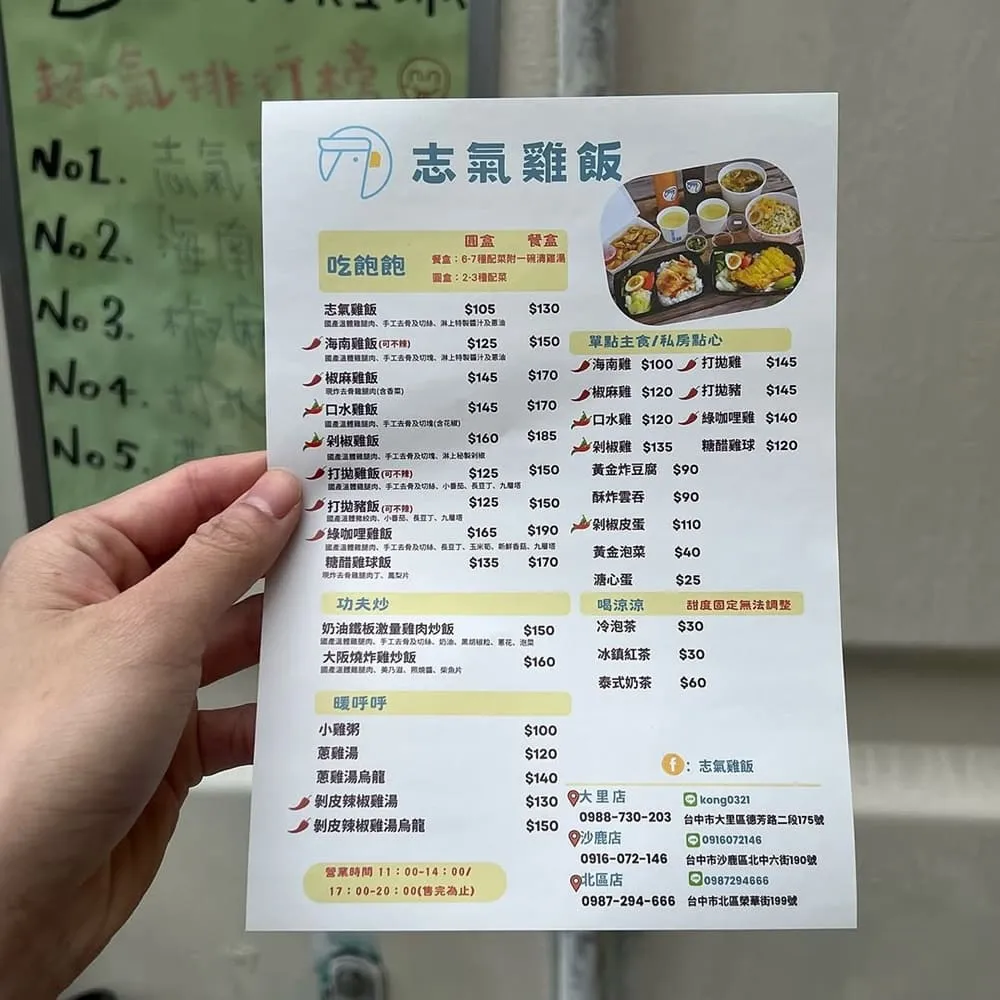 超人氣排行榜
No1. 志氣
No2. 海南
No3. 椒麻
No4.
No5.
志氣雞飯
吃飽飽
圓盒 餐盒
餐盒：6-7種配菜附一碗清雞湯
圓盒：2-3種配菜
志氣雞飯 $105 $130
國產溫體雞腿肉、手工去骨及切絲、淋上特製醬汁及蔥油
海南雞飯(可不辣) $125 $150
國產溫體雞腿肉、手工去骨及切塊、淋上特製醬汁及蔥油
椒麻雞飯 $145 $170
現炸去骨雞腿肉(含香菜)
口水雞飯 $145 $170
國產溫體雞腿肉、手工去骨及切塊(含花椒)
剁椒雞飯 $160 $185
國產溫體雞腿肉、手工去骨及切塊、淋上秘製剁椒
打拋雞飯(可不辣) $125 $150
國產溫體雞腿肉、手工去骨及切絲、小番茄、長豆丁、九層塔
打拋豬飯(可不辣) $125 $150
國產溫體豬絞肉、小番茄、長豆丁、九層塔
綠咖哩雞飯 $165 $190
國產溫體雞腿肉、手工去骨及切絲、長豆丁、玉米筍、新鮮香菇、九層塔
糖醋雞球飯 $135 $170
現炸去骨雞腿肉丁、鳳梨片
功夫炒
奶油鐵板激量雞肉炒飯 $150
國產溫體雞腿肉、手工去骨及切絲、奶油、黑胡椒粒、蔥花、泡菜
大阪燒炸雞炒飯 $160
國產溫體雞腿肉、美乃滋、照燒醬、柴魚片
暖呼呼
小雞粥 $100
蔥雞湯 $120
蔥雞湯烏龍 $140
剝皮辣椒雞湯 $130
剝皮辣椒雞湯烏龍 $150
營業時間 11：00-14：00/
17：00-20：00(售完為止)
單點主食/私房點心
海南雞 $100 打拋雞 $145
椒麻雞 $120 打拋豬 $145
口水雞 $120 綠咖哩雞 $140
剁椒雞 $135 糖醋雞球 $120
黃金炸豆腐 $90
酥炸雲吞 $90
剁椒皮蛋 $110
黃金泡菜 $40
溏心蛋 $25
喝涼涼 甜度固定無法調整
冷泡茶 $30
冰鎮紅茶 $30
泰式奶茶 $60
f：志氣雞飯
大里店 kong0321
0988-730-203 台中市大里區德芳路二段175號
沙鹿店 0916072146
0916-072-146 台中市沙鹿區北中六街190號
北區店 0987294666
0987-294-666 台中市北區榮華街199號